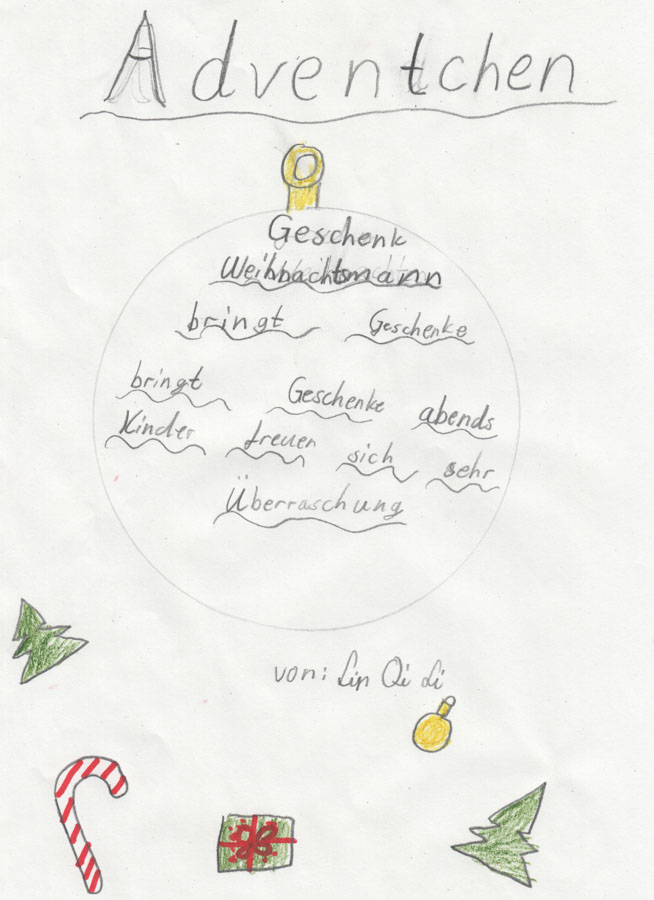 Adventchen
Geschenk
Weihnachtsmann
bringt Geschenke
bringt Geschenke abends
Kinder freuen sich sehr
Überraschung
von: Lin Qi Li